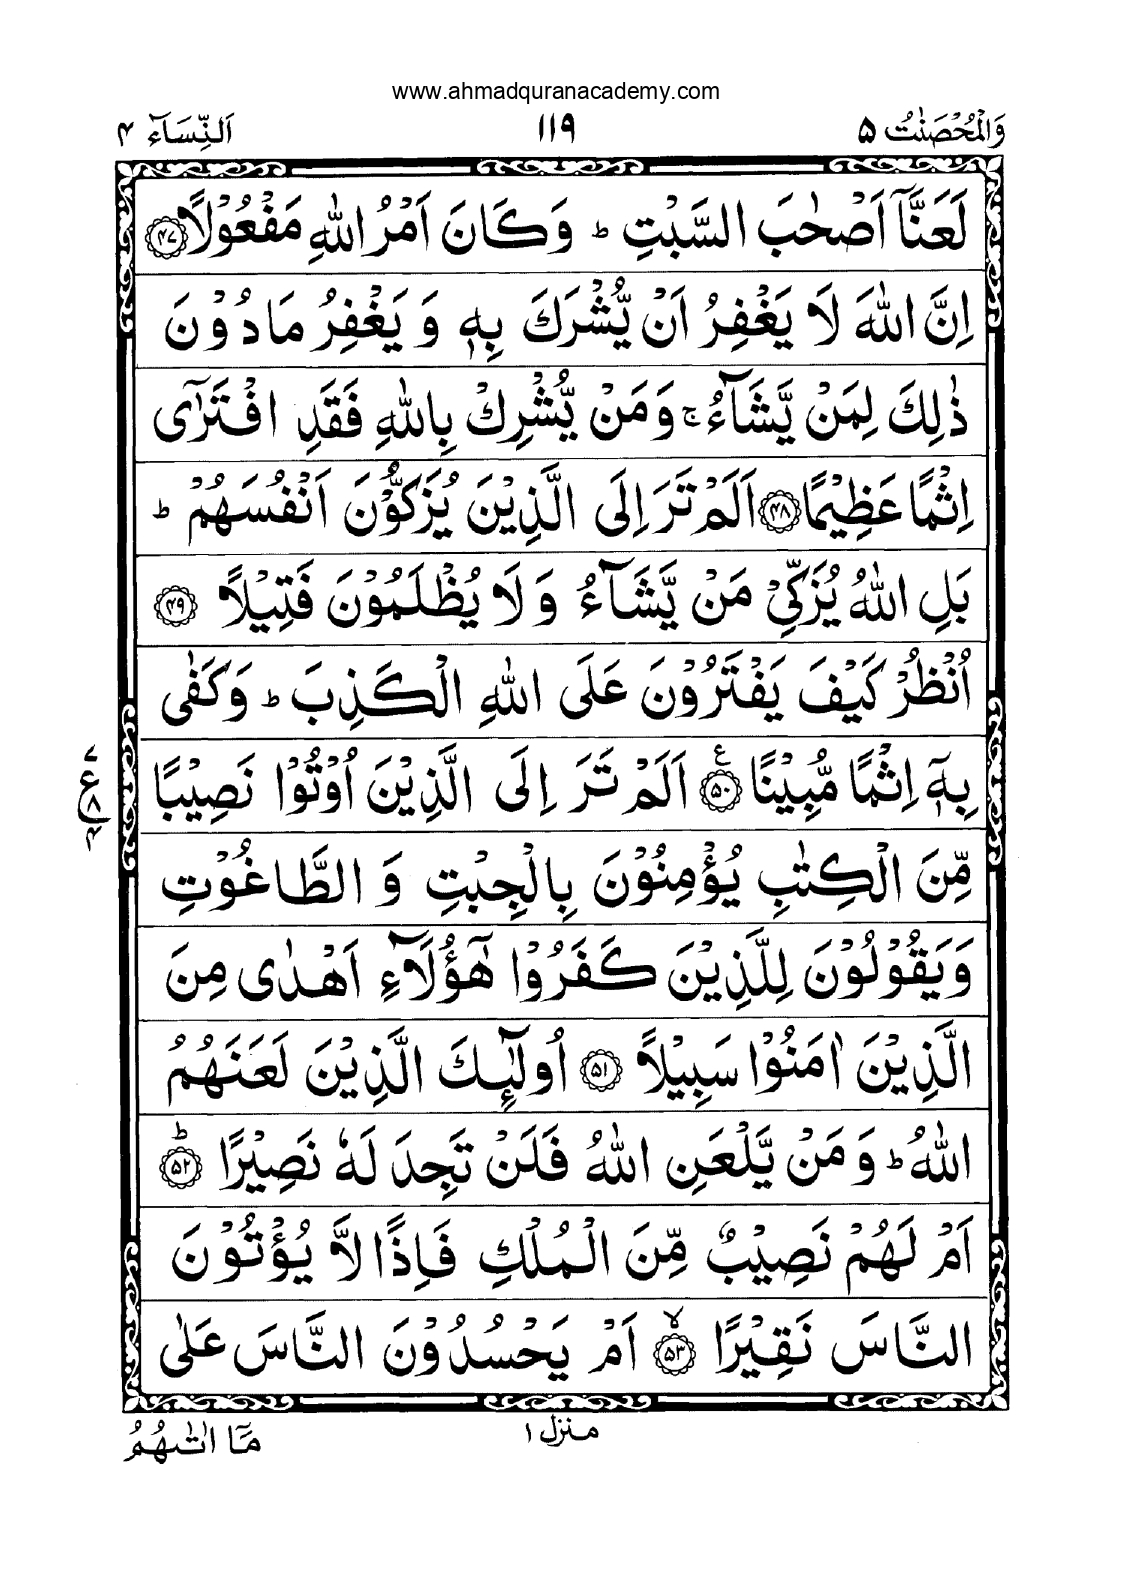 www.ahmadquranacademy.com
وَالْمُحْصَنٰتُ ۵ ۱۱۹ اَلنِّسَآء ۴
لَعَنَّاۤ اَصْحٰبَ السَّبْتِ ؕ وَ كَانَ اَمْرُ اللّٰهِ مَفْعُوْلًا ﴿۴۷﴾
اِنَّ اللّٰهَ لَا يَغْفِرُ اَنْ يُّشْرَكَ بِهٖ وَ يَغْفِرُ مَا دُوْنَ
ذٰلِكَ لِمَنْ يَّشَآءُ ۚ وَ مَنْ يُّشْرِكْ بِاللّٰهِ فَقَدِ افْتَرٰۤى
اِثْمًا عَظِيْمًا ﴿۴۸﴾ اَلَمْ تَرَ اِلَى الَّذِيْنَ يُزَكُّوْنَ اَنْفُسَهُمْ ؕ
بَلِ اللّٰهُ يُزَكِّيْ مَنْ يَّشَآءُ وَ لَا يُظْلَمُوْنَ فَتِيْلًا ﴿۴۹﴾
اُنْظُرْ كَيْفَ يَفْتَرُوْنَ عَلَى اللّٰهِ الْكَذِبَ ؕ وَ كَفٰى
بِهٖۤ اِثْمًا مُّبِيْنًا ﴿۵۰﴾ ع اَلَمْ تَرَ اِلَى الَّذِيْنَ اُوْتُوْا نَصِيْبًا
۷ ع ۸ ۴
مِّنَ الْكِتٰبِ يُؤْمِنُوْنَ بِالْجِبْتِ وَ الطَّاغُوْتِ
وَ يَقُوْلُوْنَ لِلَّذِيْنَ كَفَرُوْا هٰۤؤُلَآءِ اَهْدٰى مِنَ
الَّذِيْنَ اٰمَنُوْا سَبِيْلًا ﴿۵۱﴾ اُولٰٓئِكَ الَّذِيْنَ لَعَنَهُمُ
اللّٰهُ ؕ وَ مَنْ يَّلْعَنِ اللّٰهُ فَلَنْ تَجِدَ لَهٗ نَصِيْرًا ﴿۵۲﴾ ؕ
اَمْ لَهُمْ نَصِيْبٌ مِّنَ الْمُلْكِ فَاِذًا لَّا يُؤْتُوْنَ
النَّاسَ نَقِيْرًا ﴿۵۳﴾ ۙ اَمْ يَحْسُدُوْنَ النَّاسَ عَلٰى
منزل ۱ مَاۤ اٰتٰىهُمُ